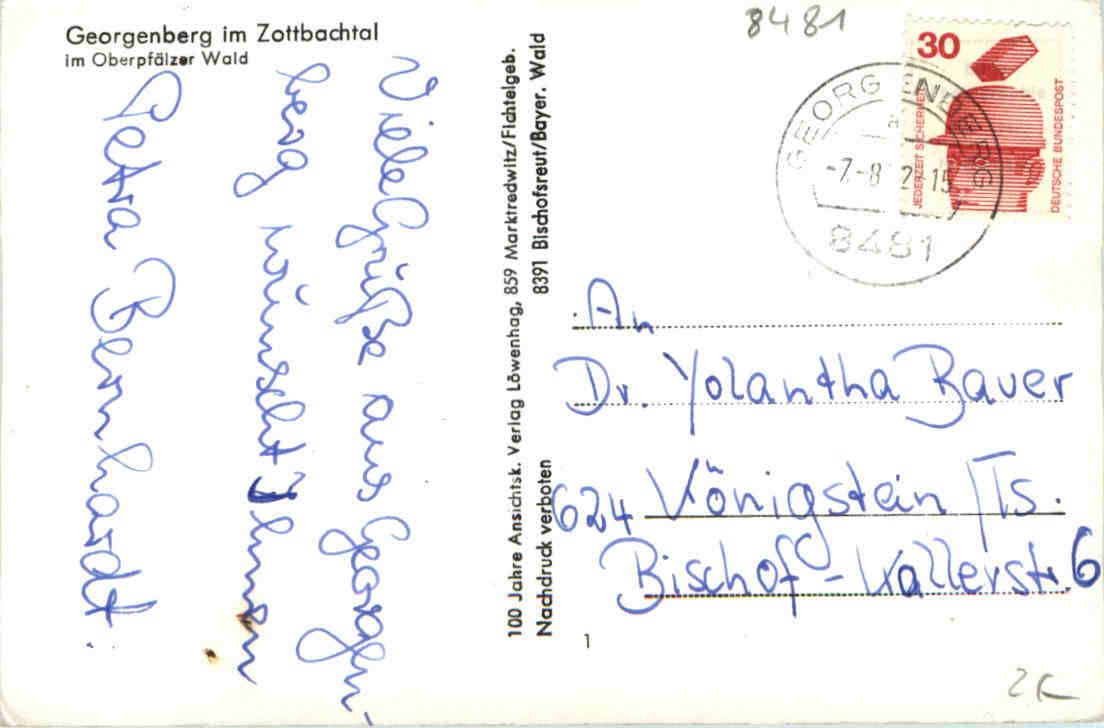 Georgenberg im Zottbachtal
im Oberpfälzer Wald
Viele Grüße aus Georgen-
berg wünscht Ihnen
Petra Bernhardt.
100 Jahre Ansichtsk. Verlag Löwenhag, 859 Marktredwitz/Fichtelgeb.
8391 Bischofsreut/Bayer. Wald
Nachdruck verboten
8481
30
JEDERZEIT SICHERHEIT
DEUTSCHE BUNDESPOST
GEORGENBERG
a
-7.-8 2-15
8481
An
Dr. Yolantha Bauer
624 Königstein/Ts.
Bischof-Kallerstr. 6
1